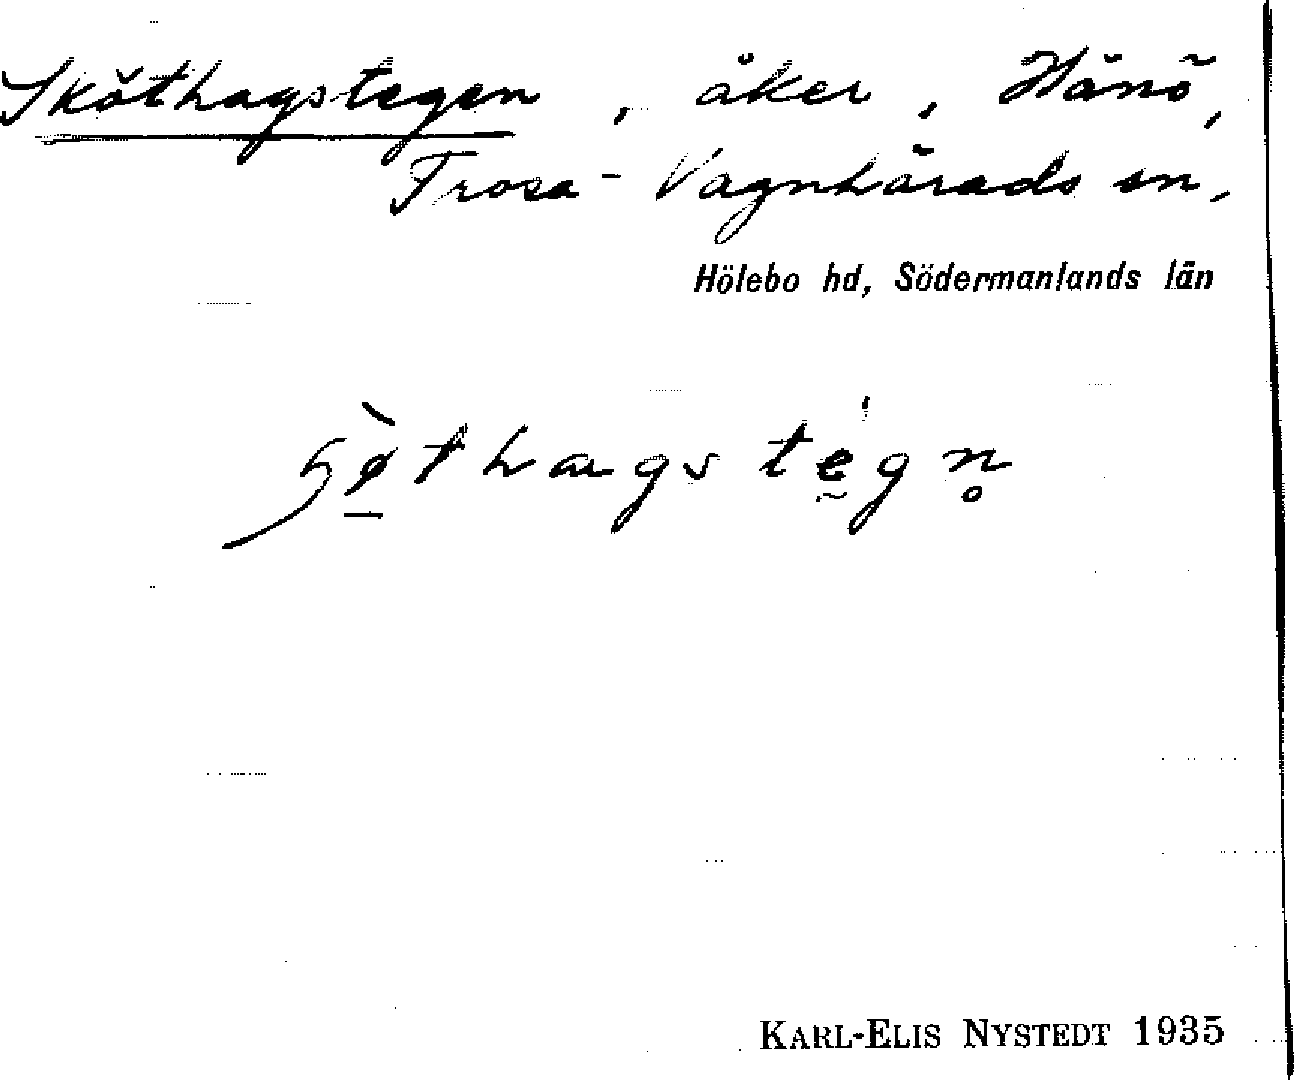 Sköthagstegen, åker, Hänö,
Trosa-Vagnhärads sn,
Hölebo hd, Södermanlands län
ɧø̠̀thagstḛ̀gn̥
KARL-ELIS NYSTEDT 1935